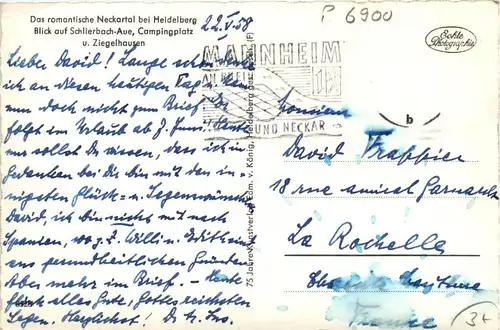 Das romantische Neckartal bei Heidelberg
Blick auf Schlierbach-Aue, Campingplatz
u. Ziegelhausen
22.V.58
P 6900
Echte
Photographie
MANNHEIM
AN RHEIN
UND NECKAR
b
Lieber David! Lange schon denke
ich an diesen heutigen Tag, kam
nun doch nicht zum Brief. Der
folgt im Urlaub ab 7. Juni. Heut
sollst Du wissen, dass ich in
Gedanken bei Dir bin mit den in-
nigsten Glück- u. Segenswünschen.
David, ich bin nicht mit nach
Spanien, wo z. Z. Willi u. Edith sind
aus gesundheitlichen Gründen.
Aber mehr im Brief. – Heute
alles Gute, Gottes reichsten
Segen. Herzlichst! Dr.
75 Jahre Kunstverlag Edm. v. König, Heidelberg
Monsieur
David Frappier
18 rue amiral Garnault
La Rochelle
Charente Maritime
France